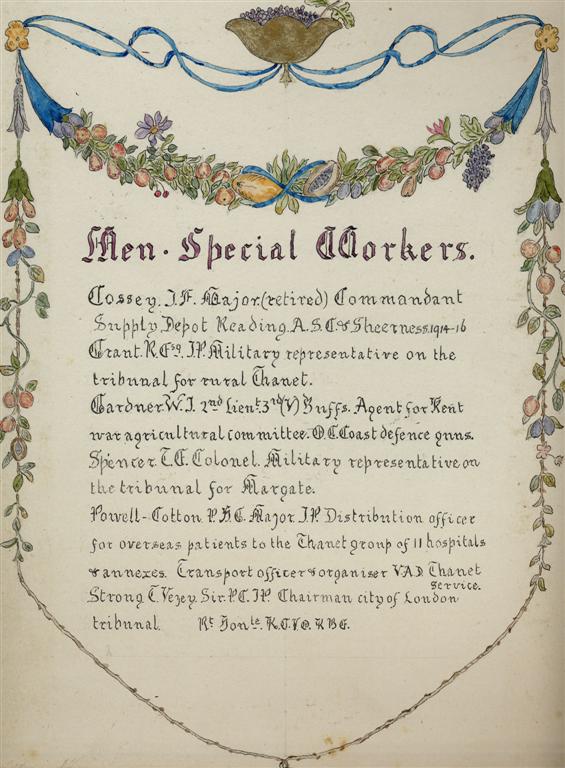 Men. Special Workers.
Cossey. J.F. Major. (retired) Commandant
Supply Depot Reading. A.S.C. & Sheerness. 1914-16
Grant. R. Esq. J.P. Military representative on the
tribunal for rural Thanet.
Gardner. W.J. 2nd Lieut. 3rd (V) Buffs. Agent for Kent
war agricultural committee. O.C. Coast defence guns.
Spencer. T.E. Colonel. Military representative on
the tribunal for Margate.
Powell-Cotton P.H.G. Major. J.P. Distribution officer
for overseas patients to the Thanet group of 11 hospitals
& annexes. Transport officer & organiser V.A.D. Thanet
service.
Strong. T. Vezey. Sir. P.C. J.P. Chairman city of London
tribunal. Rt. Honble. K.C.V.O. K.B.E.